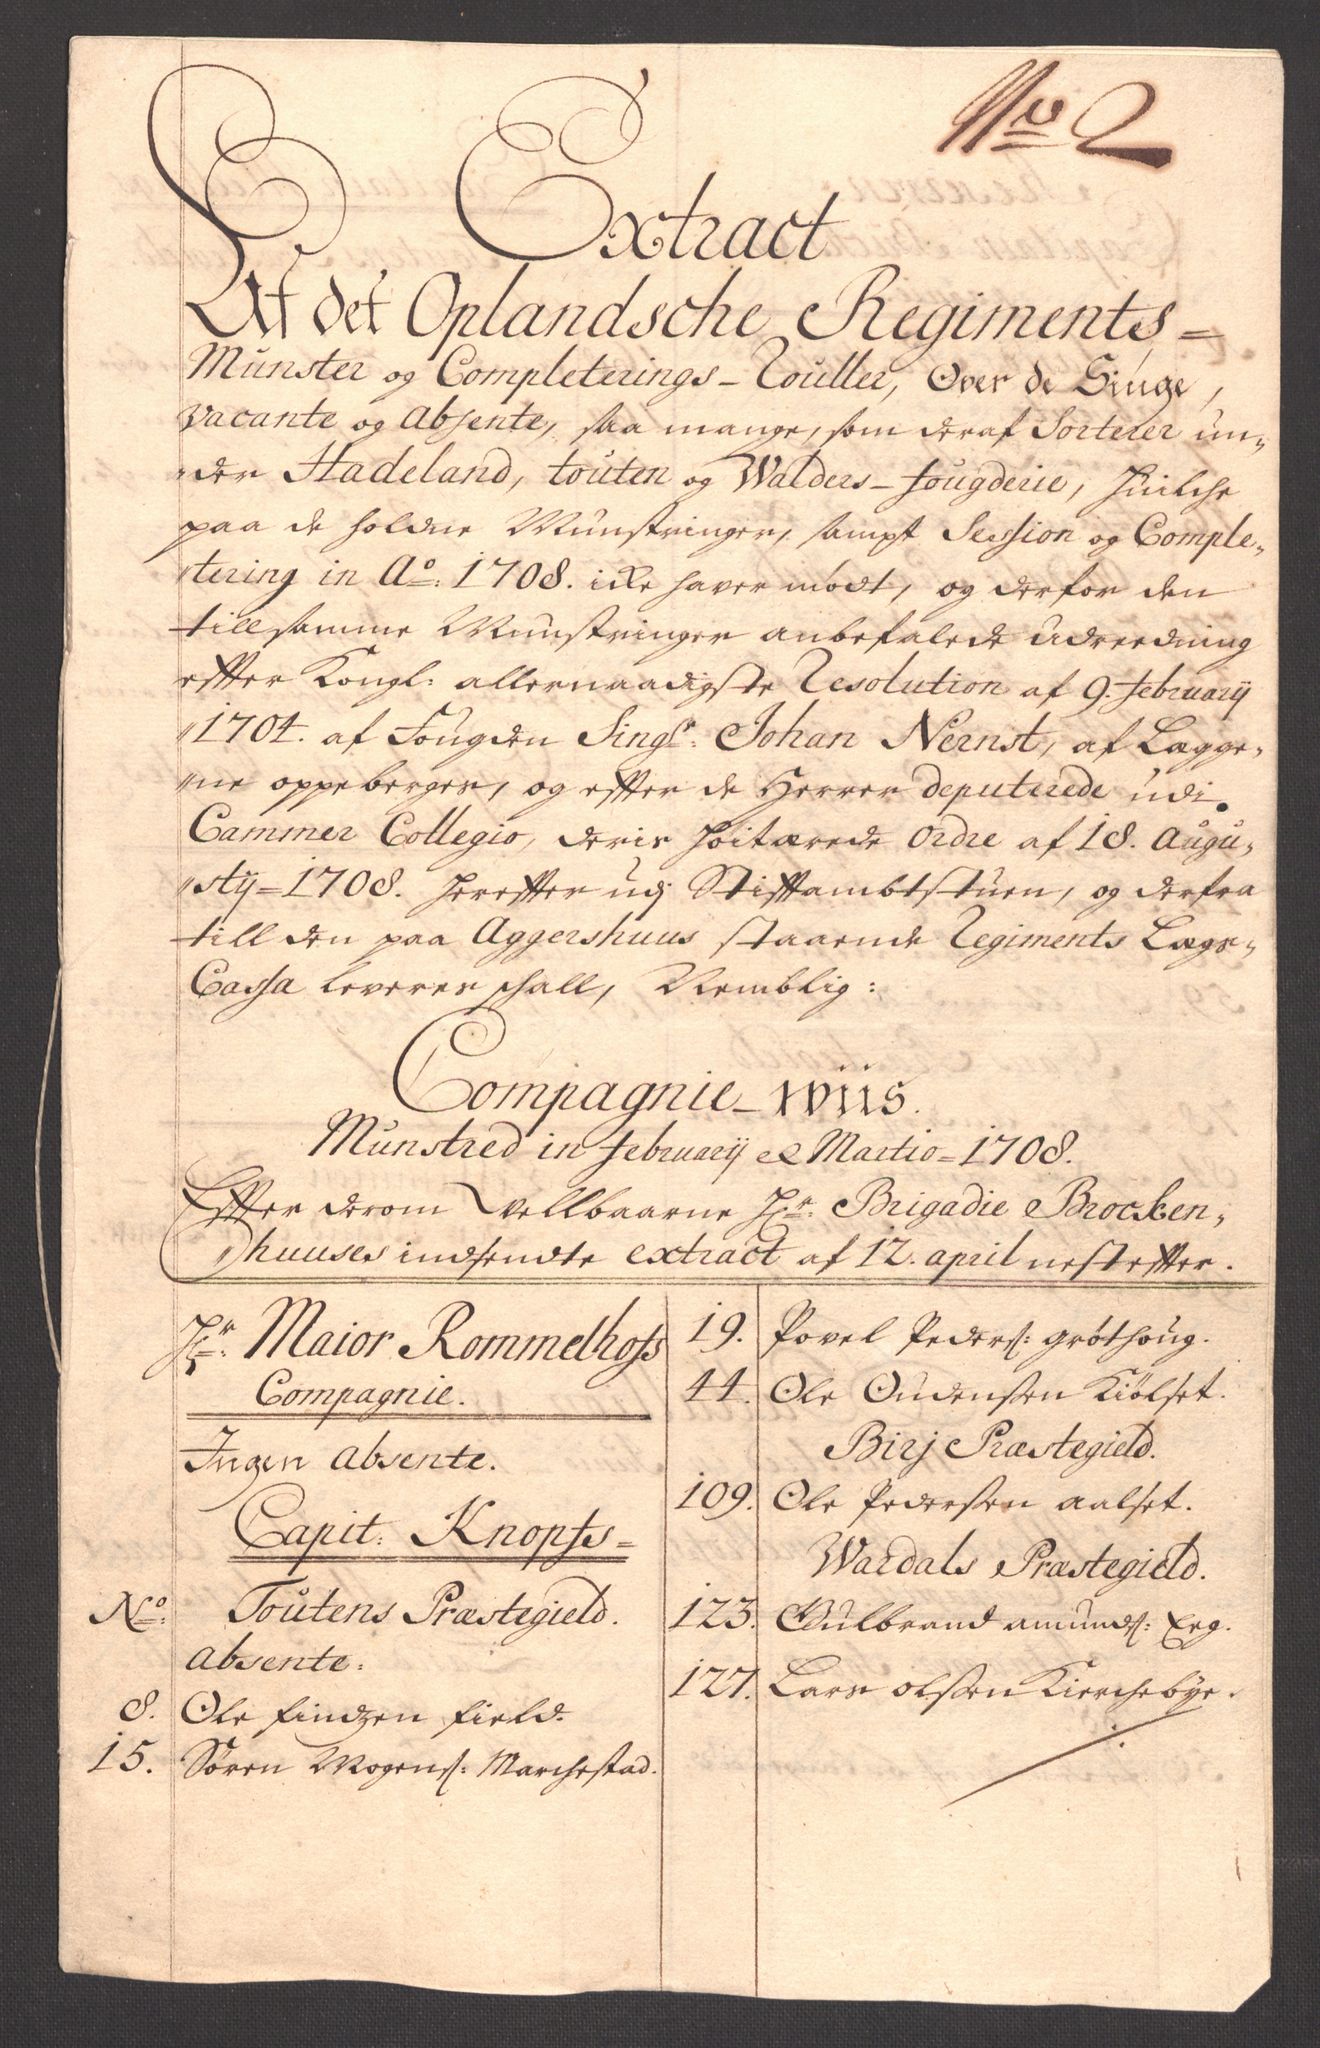 No 2
Extract
Af det Oplandsche Regiments-
Munster og Completerings-Rouller, Over de Siuge,
vacante og absente, saa mange, som deraf Sorterer un-
der Hadeland, touten og Walders-fougderie, huilche
paa de holdne Munstringer, sampt Session og Comple-
tering in Ao: 1708. icke haver mødt, og derfor den
till samme Munstringer anbefalede udreedning
effter Kongl: allernaadigste Resolution af 9. february
1704. af Fougden Singr: Johan Nernst, af Lægge-
ne oppeberger, og effter de Herrer deputerede udi
Cammer Collegio, deris høitærede Ordre af 18. Augu-
stij=1708. hereffter udj Stifftambtstuen, og derfra
till den paa Aggershuus staaende Regiments Lægs-
Cassa leveres schall, Nemblig:
Compagnie-wiis.
Munstred in february et Martio=1708.
Effter derom Vellbaarne Hr: Brigadie Brocken-
huuses indsendte extract af 12. april nesteffter.
Hr: Maior Rommelhoffs
Compagnie.
Ingen absente.
Capit: Knopfs=
No: Toutens Præstegield.
absente:
8. Ole findzen field.
15. Søren Mogens: Marchestad.
19. Povel Peders: grøthoug.
44. Ole Oudensen Kiølset.
Birj Præstegield.
109. Ole Pedersen aalset.
Wardals Præstegield.
123. Gulbrand amunds: Eeg.
127. Lars olsen Kierchebye.